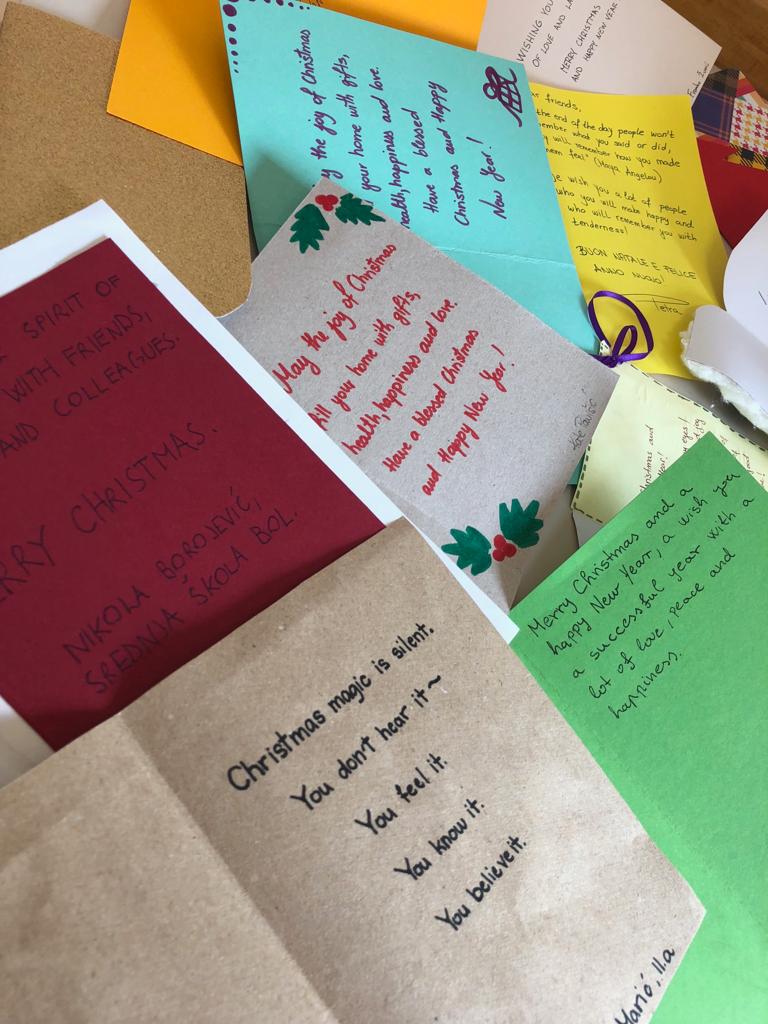 WISHING YOU
OF LOVE AND
MERRY CHRISTMAS
AND HAPPY NEW YEAR
the joy of Christmas
your home with gifts,
health, happiness and love.
Have a blessed
Christmas and Happy
New Year!
friends,
the end of the day people won't
what you said or did,
will remember how you made
feel" (Maya Angelou)
wish you a lot of people
who you will make happy and
who will remember you with
tenderness!
BUON NATALE E FELICE
ANNO NUOVO!
Petra
May the joy of Christmas
fill your home with gifts,
health, happiness and love.
Have a blessed Christmas
and Happy New Yer!
SPIRIT OF
WITH FRIENDS,
AND COLLEAGUES.
RRY CHRISTMAS.
NIKOLA BOROJEVIĆ,
SREDNJA ŠKOLA BOL.
and
eyes!
Merry Christmas and a
happy New Year, a wish you
a successful year with a
lot of love, peace and
happiness.
Christmas magic is silent.
You don't hear it~
You feel it.
You know it.
You believe it.
Marić, II.a